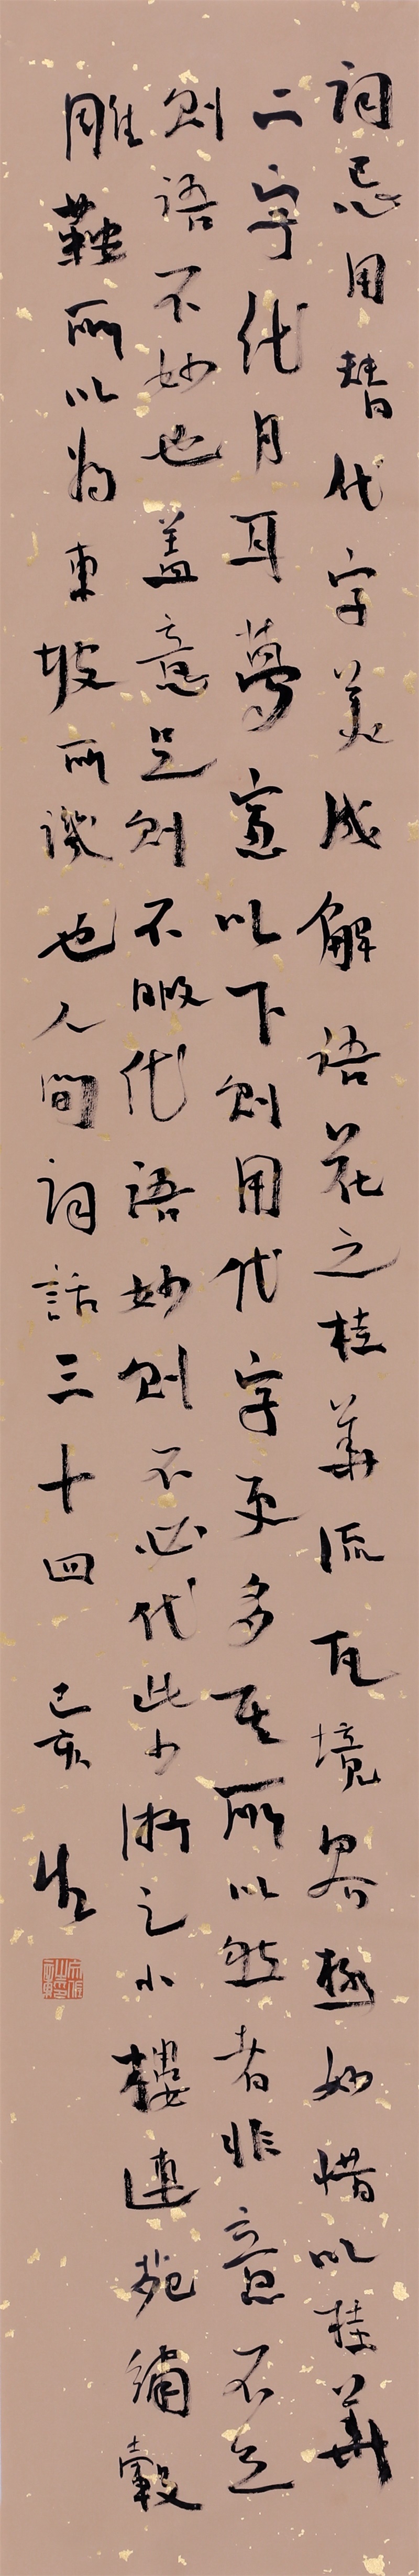 词忌用替代字美成解语花之桂華流瓦境界極妙惜以桂華
二字代月耳夢窓以下則用代字更多其所以然者非意不足
則語不妙也盖意足則不暇代語妙則不必代此少游之小樓連苑繡轂
雕鞍所以为東坡所譏也人间词話三十四
己亥